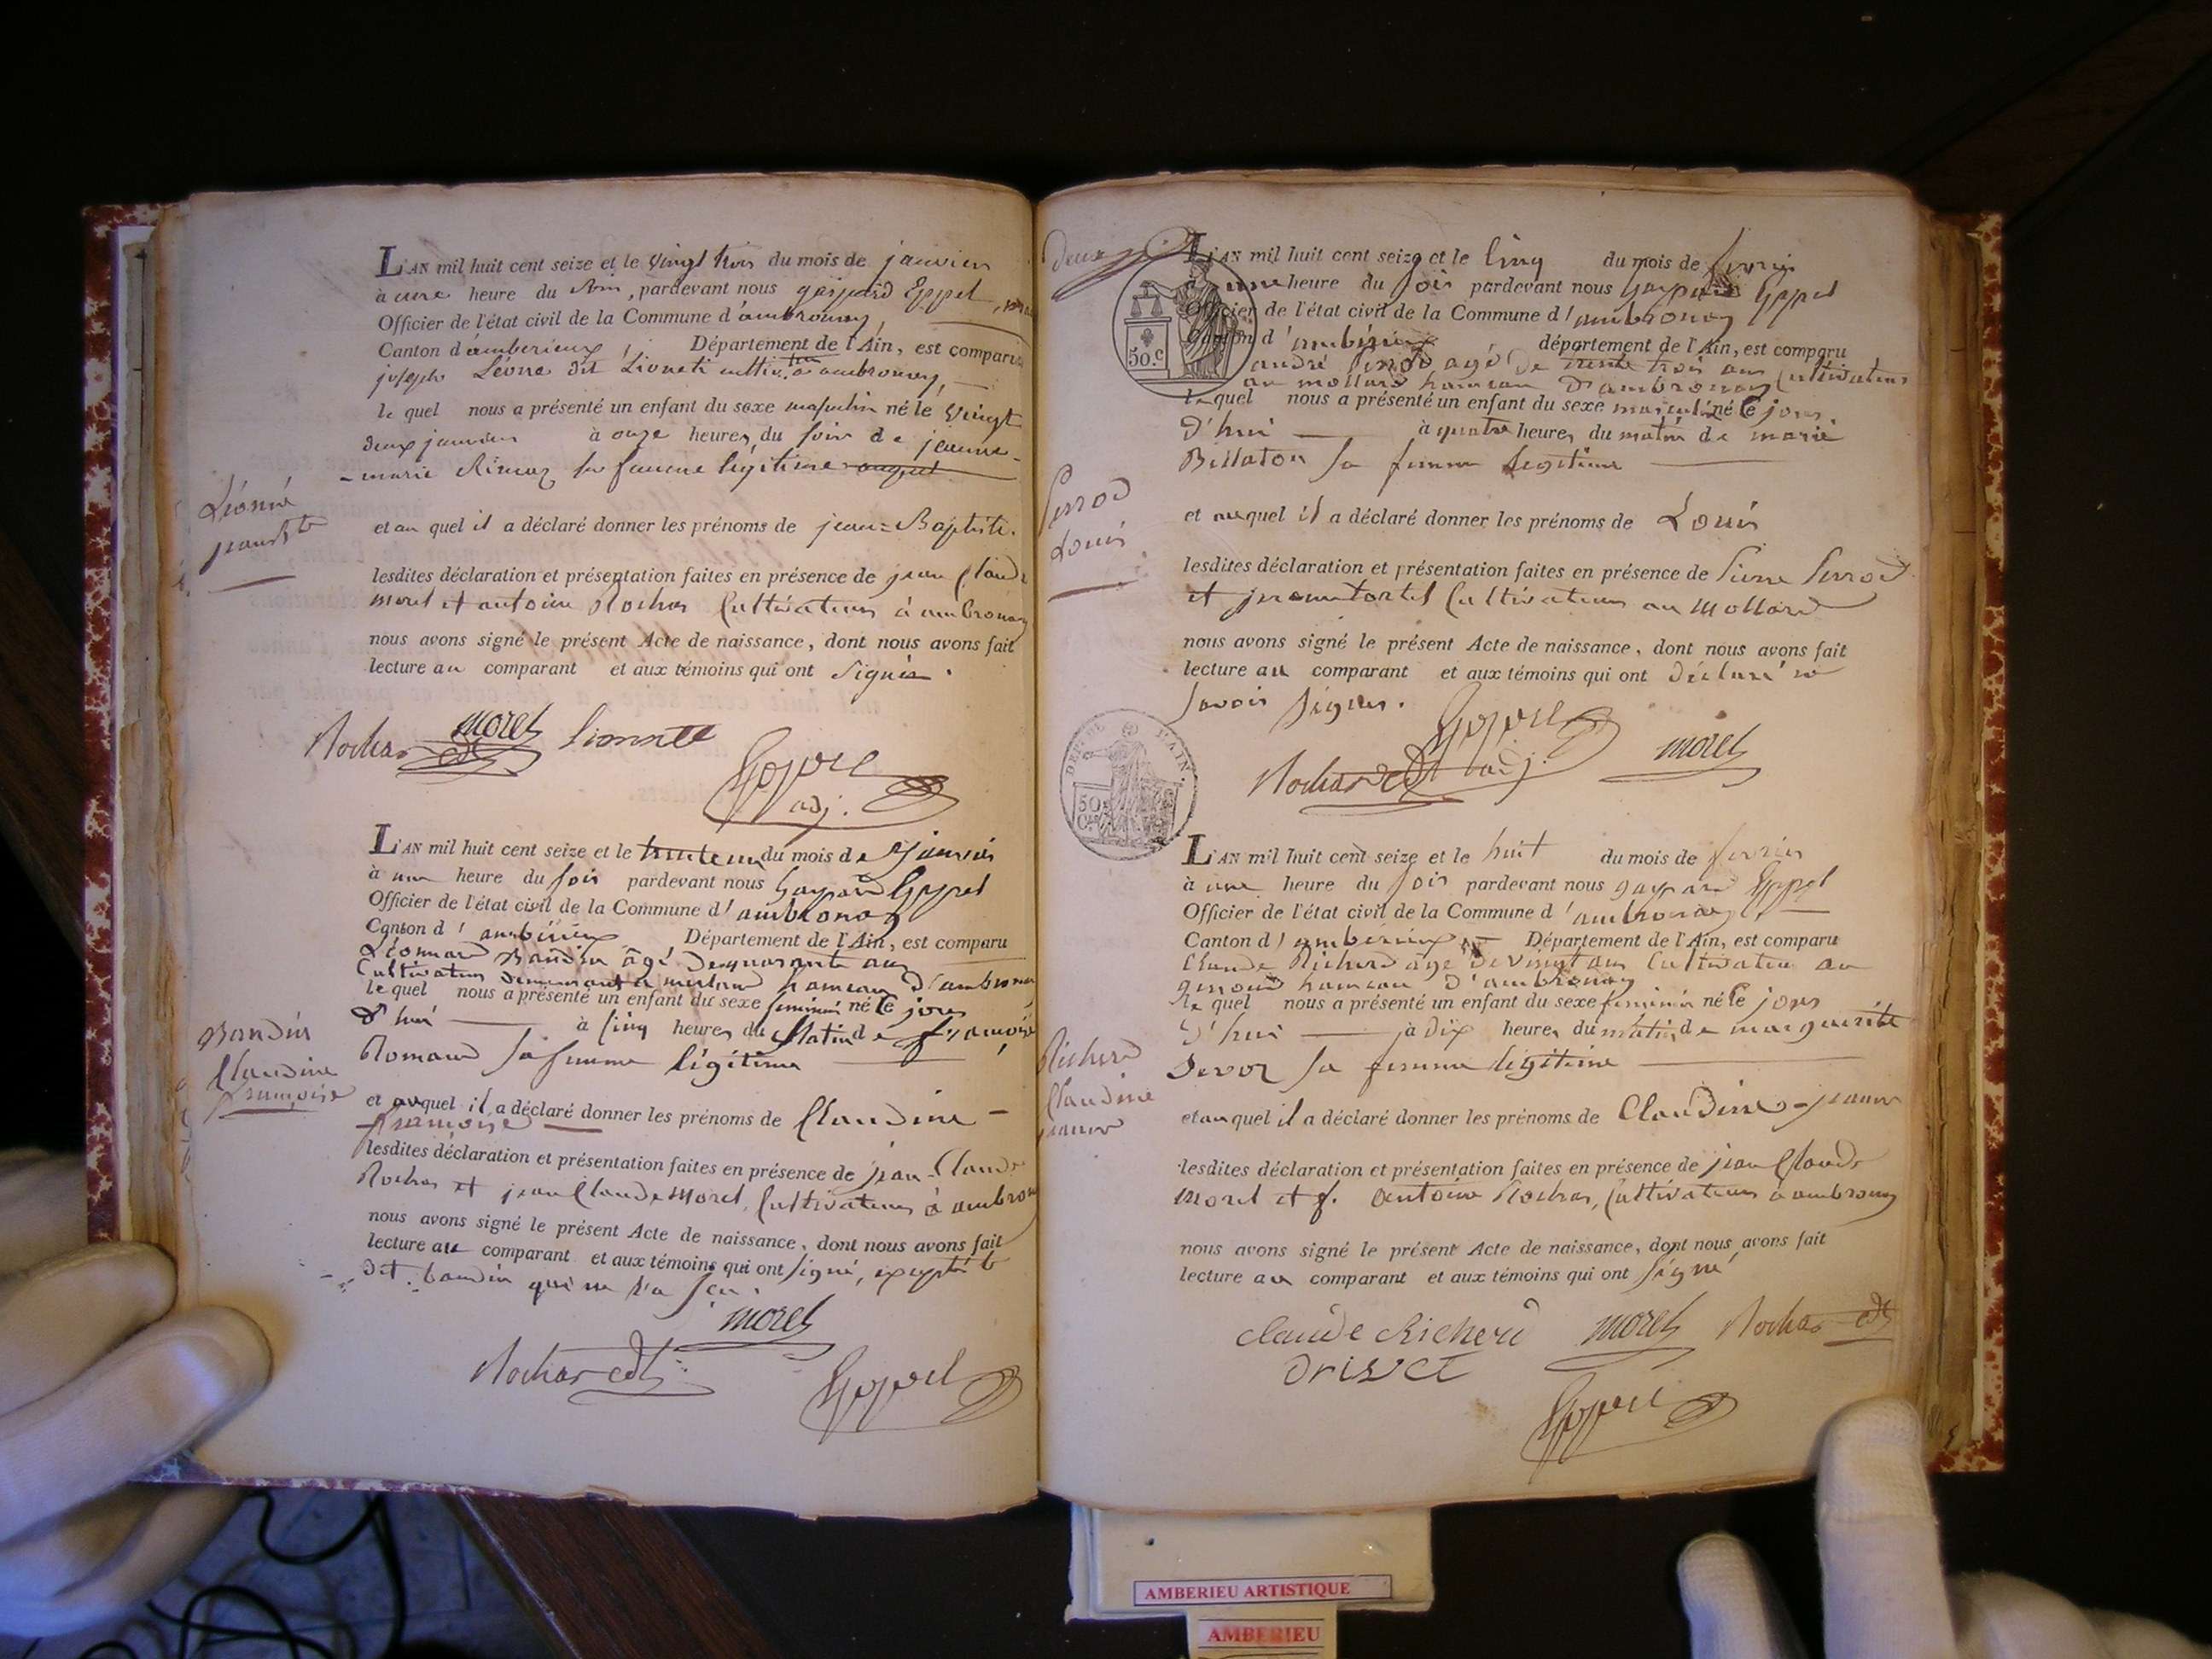 L'AN mil huit cent seize et le vingt trois du mois de janvier
à une heure du soir, pardevant nous gaspard Eppel,
Officier de l'état civil de la Commune d'ambronay,
Canton d'amberieux, Département de l'Ain, est comparu
joseph Léonie dit Lionet cultiv.teur à ambronay,
le quel nous a présenté un enfant du sexe masculin né le vingt
deux janvier à onze heures du soir de jeanne-
marie sa femme légitime auquel
Lionie
jean Bte
et au quel il a déclaré donner les prénoms de jean=Baptiste.
lesdites déclaration et présentation faites en présence de jean Claude
morel et antoine Rochas Cultivateurs à ambronay
nous avons signé le présent Acte de naissance, dont nous avons fait
lecture au comparant et aux témoins qui ont signés.
Rochas cdt morel Lionnet
Eppel
adj.
L'AN mil huit cent seize et le trente un du mois de janvier
à une heure du soir pardevant nous Gaspard Eppel
Officier de l'état civil de la Commune d'ambronay
Canton d'ambérieux Département de l'Ain, est comparu
Léonard Bandin âgé de quarante ans
Cultivateur demeurant à merland hameau d'ambronay
le quel nous a présenté un enfant du sexe féminin né le jour
d'hui à cinq heures du Matin de françoise
Romand sa femme légitime
Bandin
Claudine
françoise
et auquel il a déclaré donner les prénoms de Claudine-
françoise
lesdites déclaration et présentation faites en présence de jean-Claude
Rochas et jean Claude Morel, Cultivateurs à ambronay
nous avons signé le présent Acte de naissance, dont nous avons fait
lecture au comparant et aux témoins qui ont signé, excepté le
dit bandin qui ne l'a sçu.
morel
Rochas cdt Eppel
deux
50.c
L'AN mil huit cent seize et le Cinq du mois de février
à une heure du soir pardevant nous Gaspard Eppel
Officier de l'état civil de la Commune d'ambronay
Canton d'ambérieux département de l'Ain, est comparu
andré Perrod agé de trente trois ans Cultivateur
au mollard hameau d'ambronay
le quel nous a présenté un enfant du sexe masculin né le jour
d'hui à quatre heures du matin de marie
Billaton sa femme légitime
Perrod
Louis
et auquel il a déclaré donner les prénoms de Louis
lesdites déclaration et présentation faites en présence de Pierre Perrod
et jean tortel Cultivateurs au Mollard
nous avons signé le présent Acte de naissance, dont nous avons fait
lecture au comparant et aux témoins qui ont déclaré ne
savoir signer.
DEP. DE L'AIN.
50
Eppel
Rochas cdt adj. morel
L'AN mil huit cent seize et le huit du mois de février
à une heure du soir pardevant nous gaspard Eppel
Officier de l'état civil de la Commune d'ambronay
Canton d'ambérieux Département de l'Ain, est comparu
Claude Richerd âgé de vingt ans Cultivateur au
genoud hameau d'ambronay
le quel nous a présenté un enfant du sexe féminin né le jour
d'hui à dix heures du matin de marguerite
sa femme légitime
Richerd
Claudine
jeanne
et auquel il a déclaré donner les prénoms de Claudine-jeanne
lesdites déclaration et présentation faites en présence de jean Claude
Morel et f. antoine Rochas, Cultivateurs à ambronay
nous avons signé le présent Acte de naissance, dont nous avons fait
lecture au comparant et aux témoins qui ont signé
claude Richerd morel Rochas cdt
Eppel
AMBERIEU ARTISTIQUE
AMBERIEU